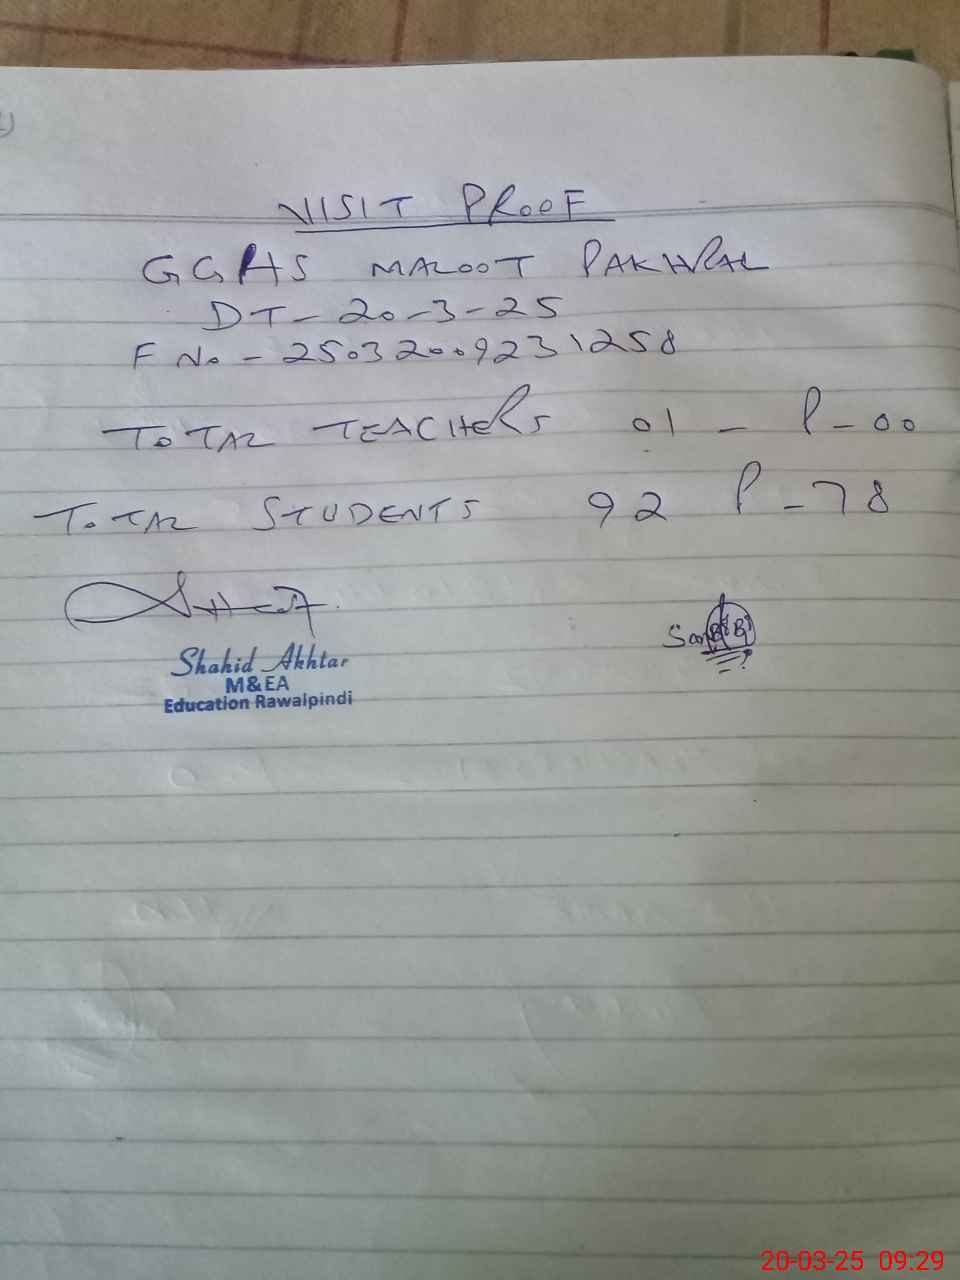 VISIT PROOF
GGHS MALOOT PAKHRAL
DT - 20-3-25
F No - 25032009231258
TOTAL TEACHERS 01 - P - 00
TOTAL STUDENTS 92 P - 78
Shahid Akhtar
M&EA
Education Rawalpindi
20-03-25 09:29